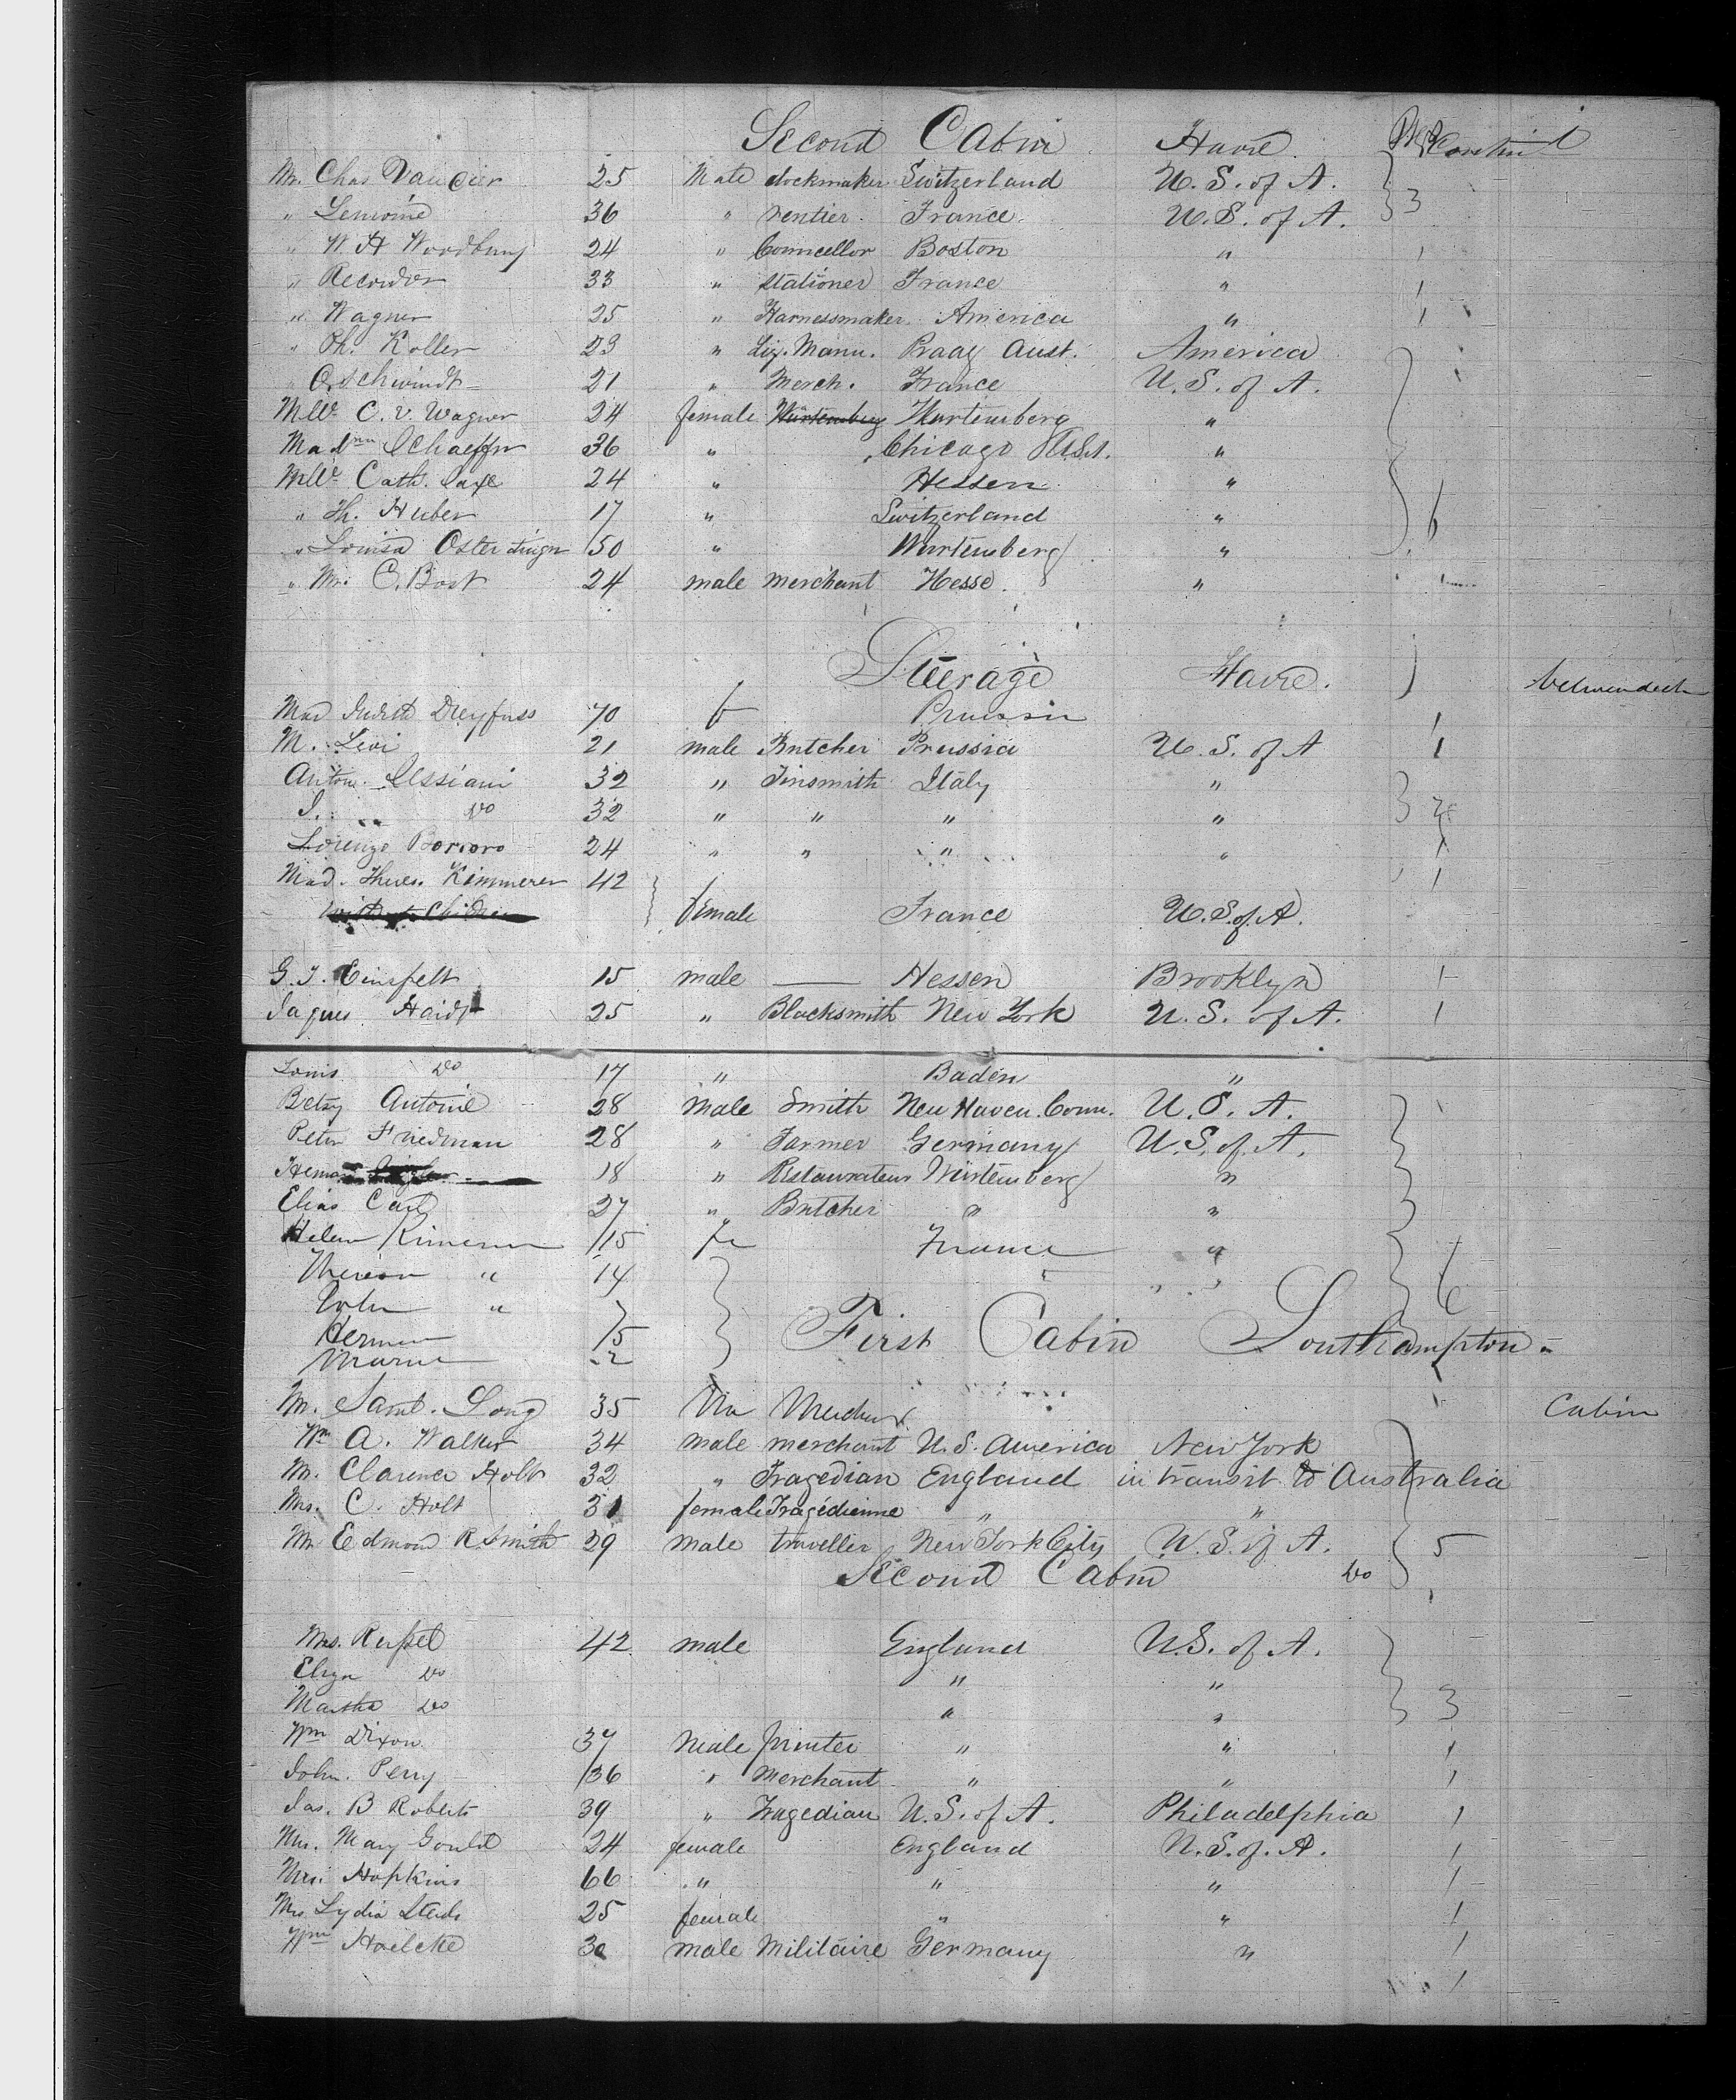 Second Cabin Havre
Mr. Chas Vaucier 25 Male clockmaker Switzerland U. S. of A. 3
" Lemoine 36 " rentier France U. S. of A.
" W H Woodbury 24 " Councellor Boston " 1
" Recordon 33 " Stationer France " 1
" Wagner 25 " Harnessmaker America " 1
" Ph. Koller 23 " Cig. Manu. Praag Aust. America
" O. Schwindt 21 " Merch. France U. S. of A.
Mlle C. v. Wagner 24 female Würtemberg Wurtemberg "
Madme Schaeffer 36 " Chicago "
Mlle Cath. Saxe 24 " Hessen "
" Th. Huber 17 " Switzerland " 6
" Louisa Osterdinger 50 " Wurtemberg "
" Mr. C. Bost 24 male merchant Hesse "
Steerage Havre.
Mad Judith Dreyfuss 70 f Prussia 1
M. Levi 21 male Butcher Prussia U. S. of A 1
Anton Cessiani 32 " Tinsmith Italy "
J. do 32 " " " " 2
Lorenzo Borroro 24 " " " " 1
Mad. Theres. Kimmerer 42 1
female France U.S. of A.
G. J. Einsfelt 15 male — Hessen Brooklyn 1
Jaques Haidt 25 " Blacksmith New York U. S. of A. 1
Louis do 17 " Baden "
Betsy Antoine 28 Male Smith New Haven. Conn. U. S. A.
Peter Friedman 28 " Farmer Germany U. S. of A.
18 " Restaurateur Würtemberg "
Elias Carl 27 " Butcher " "
Helen Kimerer 15 fe France "
Theresa " 14 6
"
Herman 5
First Cabin Southampton
2
M. Saml. Long 35 Cabin
Wm A. Walker 34 male merchant U. S. America New York
Mr. Clarence Holt 32 " Tragedian England in transit to Australia
Mrs. C. Holt 31 female Tragedienne " "
Mr Edmond R. Smith 39 male traveller New York City U. S. of A. 5
Second Cabin do
Mrs. Russel 42 male England U.S. of A.
Eliza do " "
Martha do " " 3
Wm Dixon 37 Male printer " " 1
John. Perry 36 " Merchant " " 1
Jas. B Roberts 39 " Tragedian U. S. of A. Philadelphia 1
Mrs. Mary Gould 24 female England U. S. of A. 1
Mrs. Hopkins 66 " " " 1
Mrs Lydia 25 female " " 1
Wm Haelcke 30 male Militaire Germany " 1
1